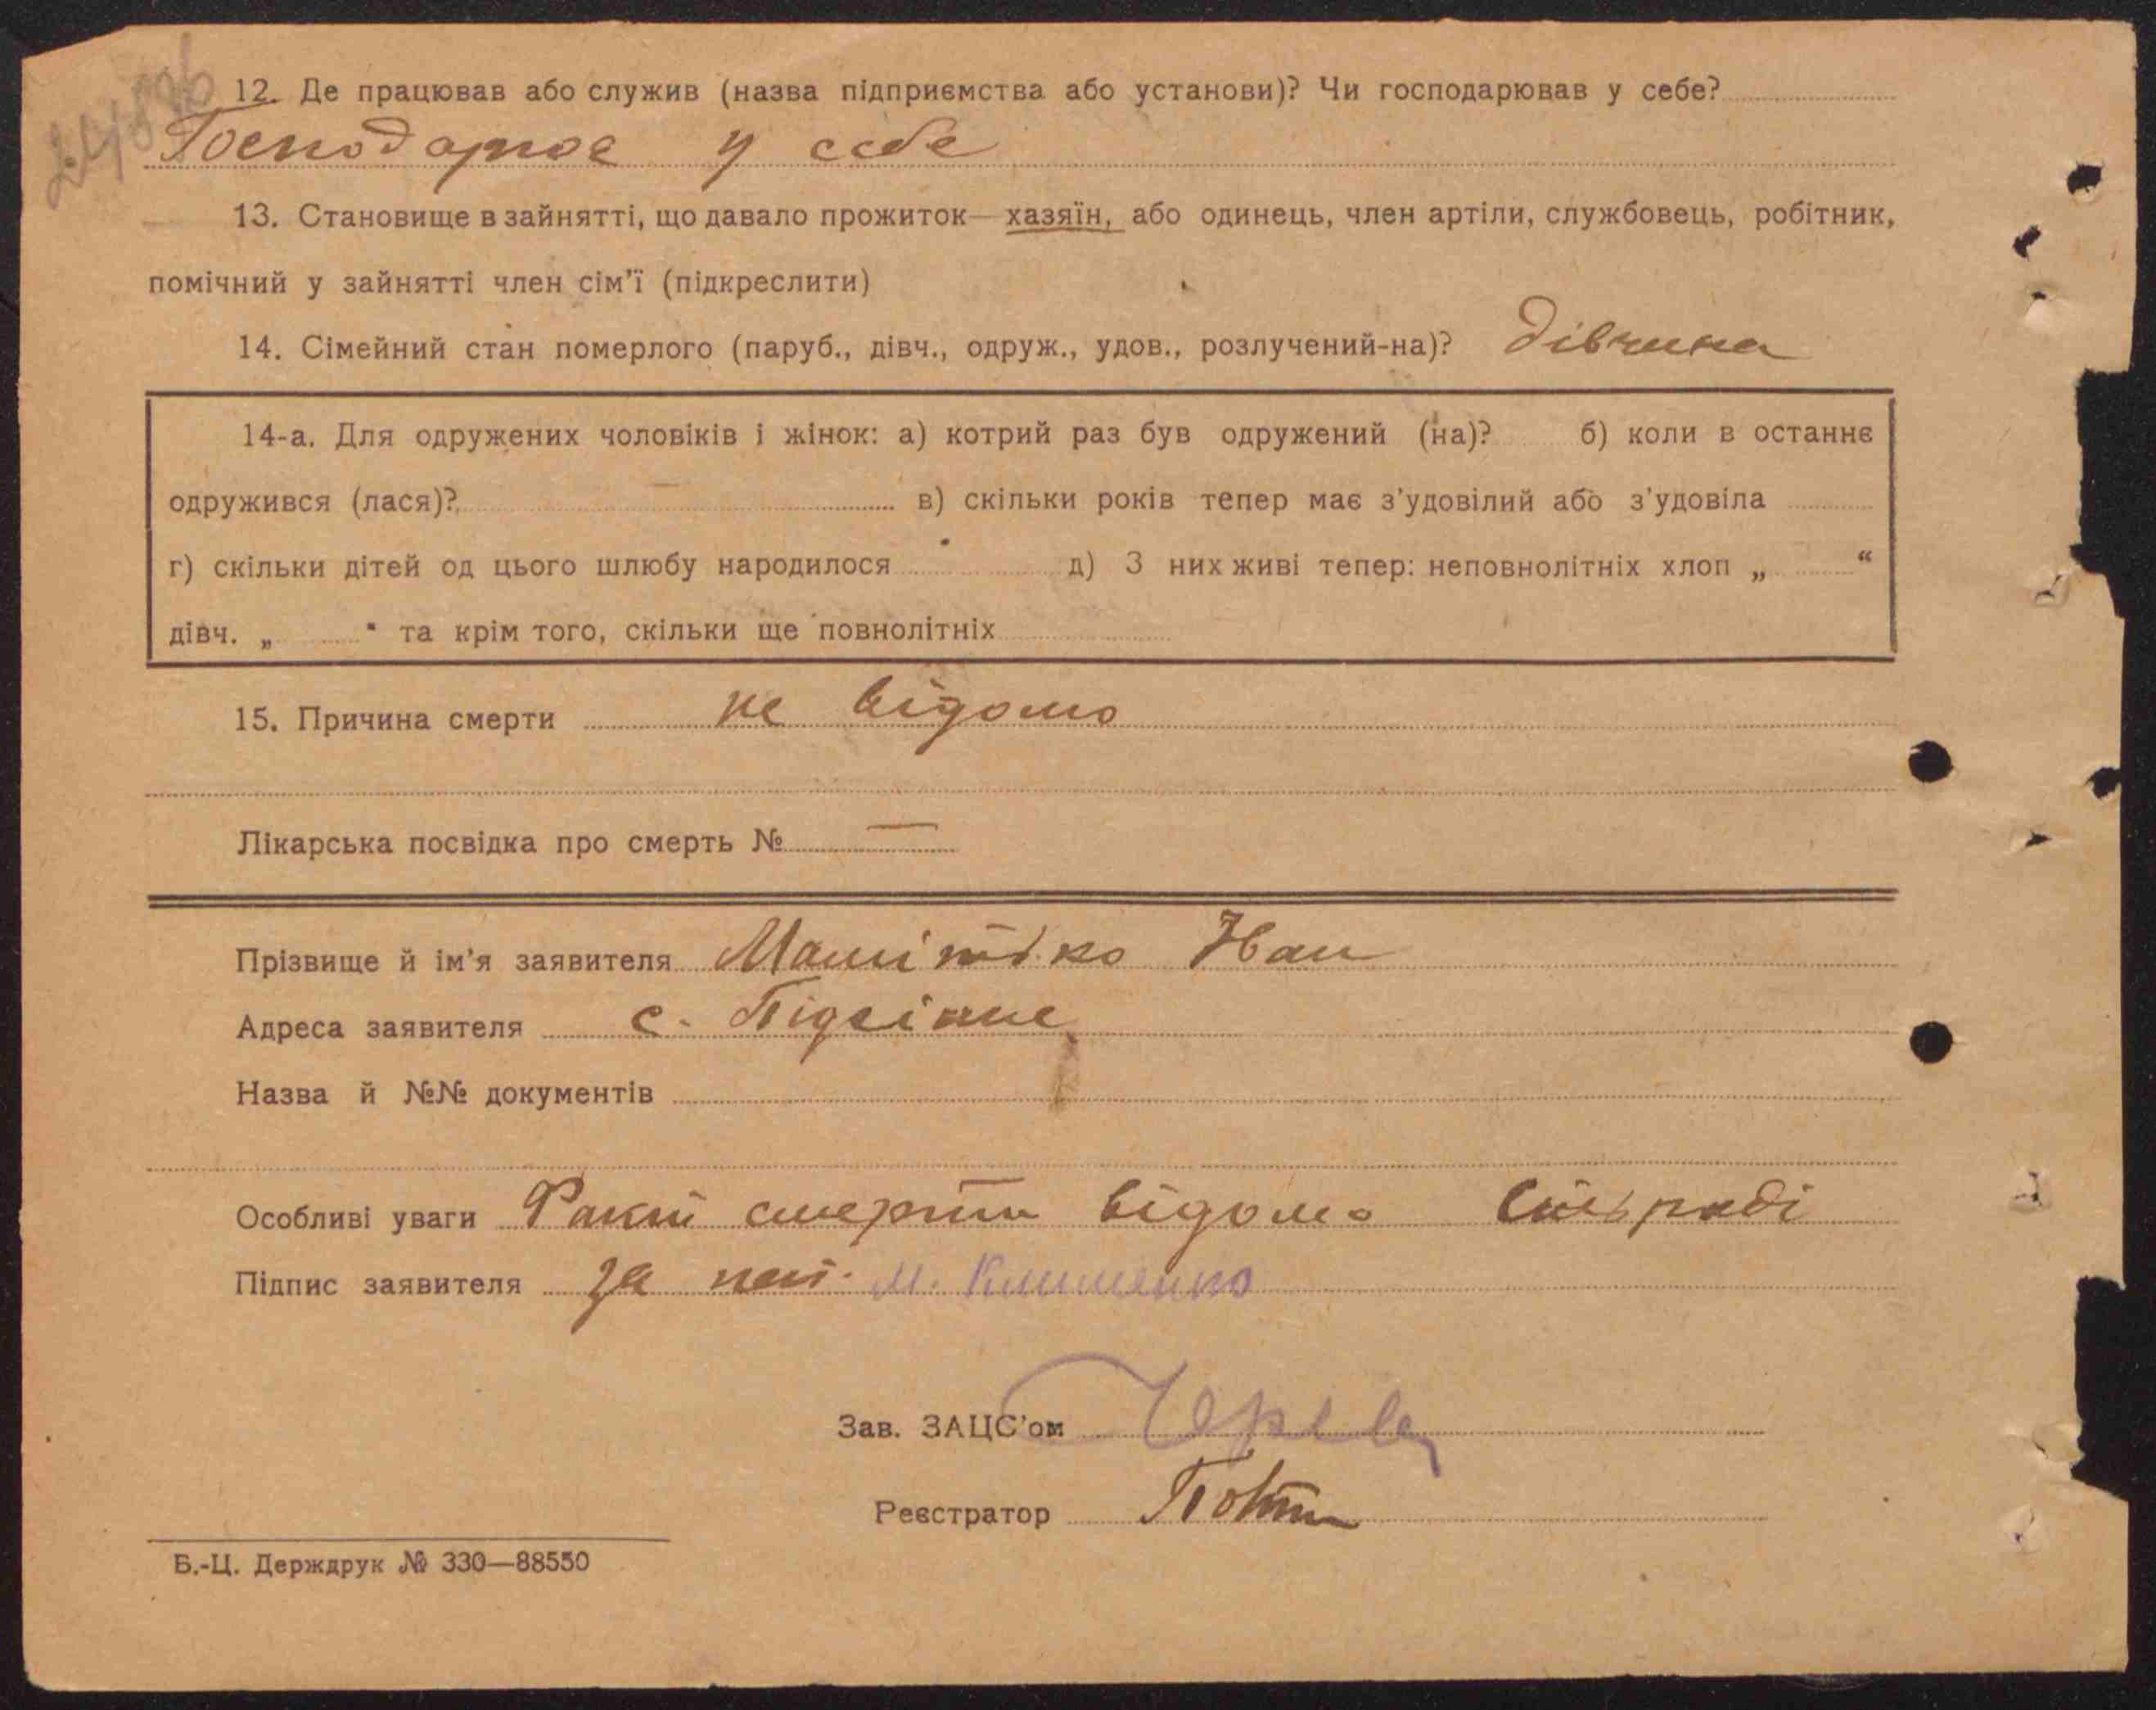 12. Де працював або служив (назва підприємства або установи)? Чи господарював у себе?
Господарює у себе
13. Становище в зайнятті, що давало прожиток— хазяїн, або одинець, член артіли, службовець, робітник,
помічний у зайнятті член сім'ї (підкреслити)
14. Сімейний стан померлого (паруб., дівч., одруж., удов., розлучений-на)? дівчина
14-а. Для одружених чоловіків і жінок: а) котрий раз був одружений (на)? б) коли в останнє
одружився (лася)? в) скільки років тепер має з'удовілий або з'удовіла
г) скільки дітей од цього шлюбу народилося д) З них живі тепер: неповнолітніх хлоп „ “
дівч. „ “ та крім того, скільки ще повнолітніх
15. Причина смерти не відомо
Лікарська посвідка про смерть № —
Прізвище й ім'я заявителя Іван
Адреса заявителя с.
Назва й №№ документів
Особливі уваги Факт смерти відомо сільраді
Підпис заявителя За неп. М. Клименко
Зав. ЗАЦС'ом
Реєстратор
Б.-Ц. Держдрук № 330—88550